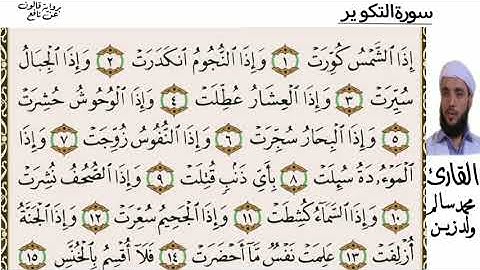 سورة التكوير
برواية قالون
عن نافع
إِذَا اَ۬لشَّمْسُ كُوِّرَتْ ١ وَإِذَا اَ۬لنُّجُومُ اُ۪نكَدَرَتْ ٢ وَإِذَا اَ۬لْجِبَالُ
سُيِّرَتْ ٣ وَإِذَا اَ۬لْعِشَارُ عُطِّلَتْ ٤ وَإِذَا اَ۬لْوُحُوشُ حُشِرَتْ
٥ وَإِذَا اَ۬لْبِحَارُ سُجِّرَتْ ٦ وَإِذَا اَ۬لنُّفُوسُ زُوِّجَتْ ٧ وَإِذَا
اَ۬لْمَوْءُۥدَةُ سُئِلَتْ ٨ بِأَيِّ ذَنۢبٖ قُتِلَتْ ٩ وَإِذَا اَ۬لصُّحُفُ نُشِرَتْ
١٠ وَإِذَا اَ۬لسَّمَآءُ كُشِطَتْ ١١ وَإِذَا اَ۬لْجَحِيمُ سُعِّرَتْ ١٢ وَإِذَا اَ۬لْجَنَّةُ
أُزْلِفَتْ ١٣ عَلِمَتْ نَفْسٞ مَّآ أَحْضَرَتْ ١٤ فَلَآ أُقْسِمُ بِالْخُنَّسِ ١٥
القارئ
محمد سالم
ولد زين